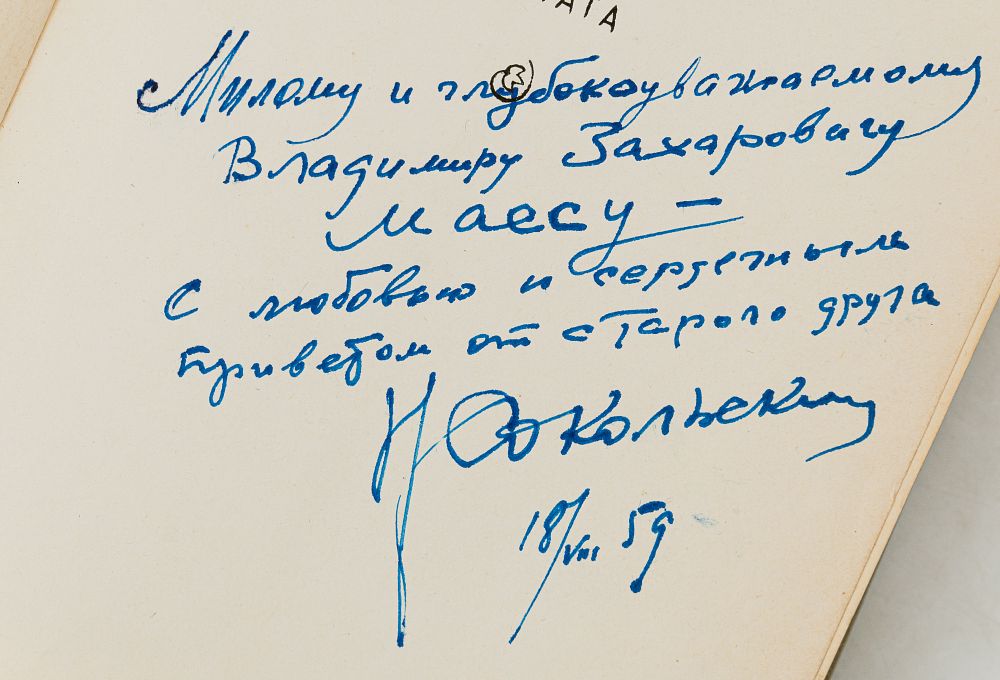 ТАТА
Милому и глубокоуважаемому
Владимиру Захаровичу
Массу —
С любовью и сердечным
приветом от старого друга
Н Сокольский
18/VIII 59